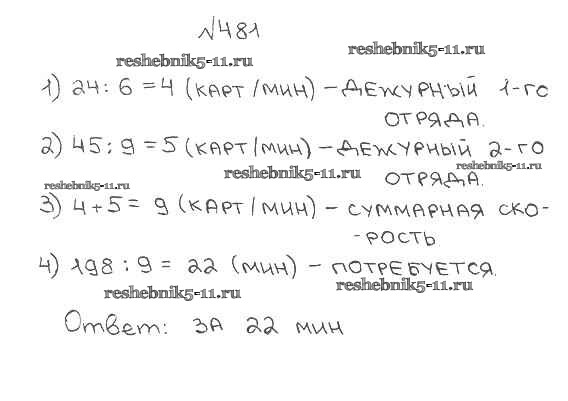 №481
reshebnik5-11.ru
reshebnik5-11.ru
1) 24 : 6 = 4 (КАРТ/МИН) – ДЕЖУРНЫЙ 1-ГО
ОТРЯДА.
2) 45 : 9 = 5 (КАРТ/МИН) – ДЕЖУРНЫЙ 2-ГО
reshebnik5-11.ru
reshebnik5-11.ru
ОТРЯДА.
reshebnik5-11.ru
3) 4 + 5 = 9 (КАРТ/МИН) – СУММАРНАЯ СКО-
-РОСТЬ
4) 198 : 9 = 22 (МИН) – ПОТРЕБУЕТСЯ.
reshebnik5-11.ru
reshebnik5-11.ru
Ответ: ЗА 22 МИН